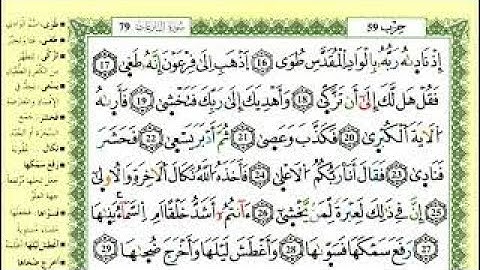 حزب 59
سورة النازعات 79
إِذْ نَادَىٰهُ رَبُّهُۥ بِالْوَادِ الْمُقَدَّسِ طُوًى ١٦ اِذْهَبِ اِلَىٰ فِرْعَوْنَ إِنَّهُۥ طَغَىٰ ١٧
فَقُلْ هَل لَّكَ إِلَىٰٓ أَن تَزَّكَّىٰ ١٨ وَأَهْدِيَكَ إِلَىٰ رَبِّكَ فَتَخْشَىٰ ١٩ فَأَرَىٰهُ
اُلَايَةَ اَلْكُبْرَىٰ ٢٠ فَكَذَّبَ وَعَصَىٰ ٢١ ثُمَّ أَدْبَرَ يَسْعَىٰ ٢٢ فَحَشَرَ
فَنَادَىٰ ٢٣ فَقَالَ أَنَا رَبُّكُمُ الَاعْلَىٰ ٢٤ فَأَخَذَهُ اللَّهُ نَكَالَ الَاخِرَةِ وَالُاولَىٰٓ
٢٥ إِنَّ فِي ذَٰلِكَ لَعِبْرَةً لِّمَنْ يَّخْشَىٰٓ ٢٦ ءَآنتُمُۥٓ أَشَدُّ خَلْقاً اَمِ السَّمَآءُ بَنَىٰهَا
٢٧ رَفَعَ سَمْكَهَا فَسَوَّىٰهَا ٢٨ وَأَغْطَشَ لَيْلَهَا وَأَخْرَجَ ضُحَىٰهَا ٢٩